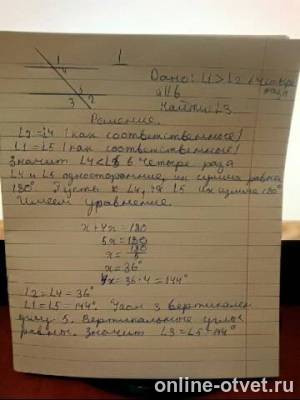 1
4
3 2
1
Дано: ∠1 > ∠2 в четыре раза
a∥b
Найти ∠3
Решение.
∠2=∠4 (как соответственные)
∠1=∠5 (как соответственные)
Значит ∠4<∠5 в четыре раза
∠4 и ∠5 односторонние, их сумма равна
180° Пусть x ∠4, 4x ∠5 их сумма 180°
Имеем уравнение.
x+4x=180
5x=180
x=180/5
x=36°
4x=36·4=144°
∠2=∠4=36°
∠1=∠5=144°. Угол 3 вертикален
углу 5. Вертикальные углы
равны. Значит ∠3=∠5=144°
online-otvet.ru